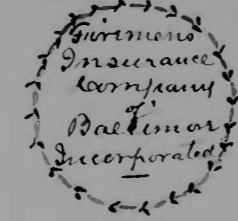 Firemens
Insurance
Company
of
Baltimor
Incorporated